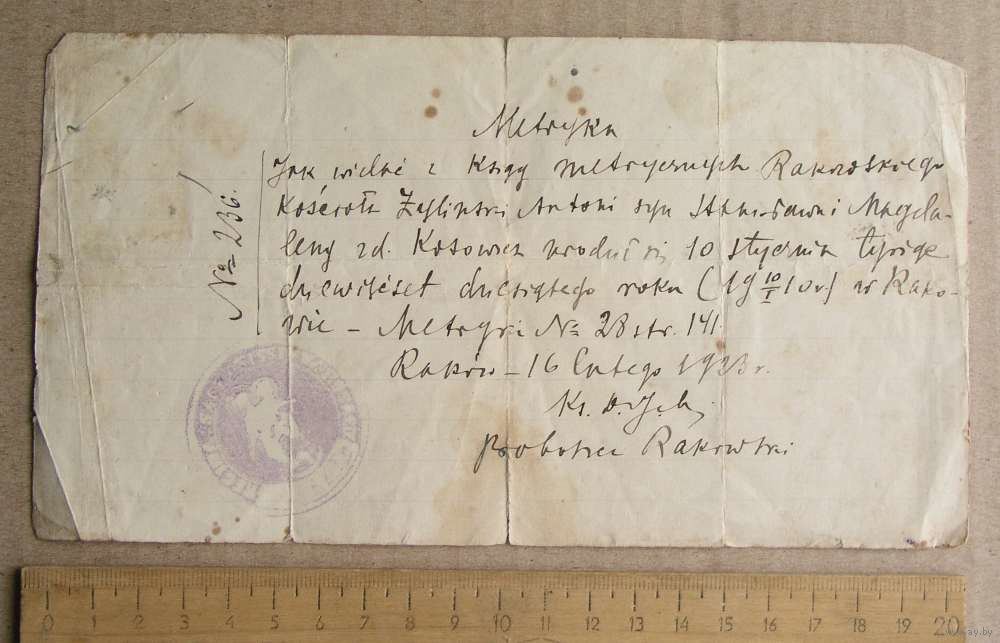 Metryka
Jak widać z Księgi metrycznych Rakowskiego
Kościoła Żyliński Antoni syn Stanisława i Magda-
leny zd. Kosowicz urodził się 10 stycznia tysiąc
dziewięćset dziesiątego roku (19 10/I 10 r) w Rako-
wie – Metryki № 28 str. 141.
Raków – 16 Lutego 1923 r.
Ks.
Proboszcz Rakowski
№ 236.
0 1 2 3 4 5 6 7 8 9 10 11 12 13 14 15 16 17 18 19 20